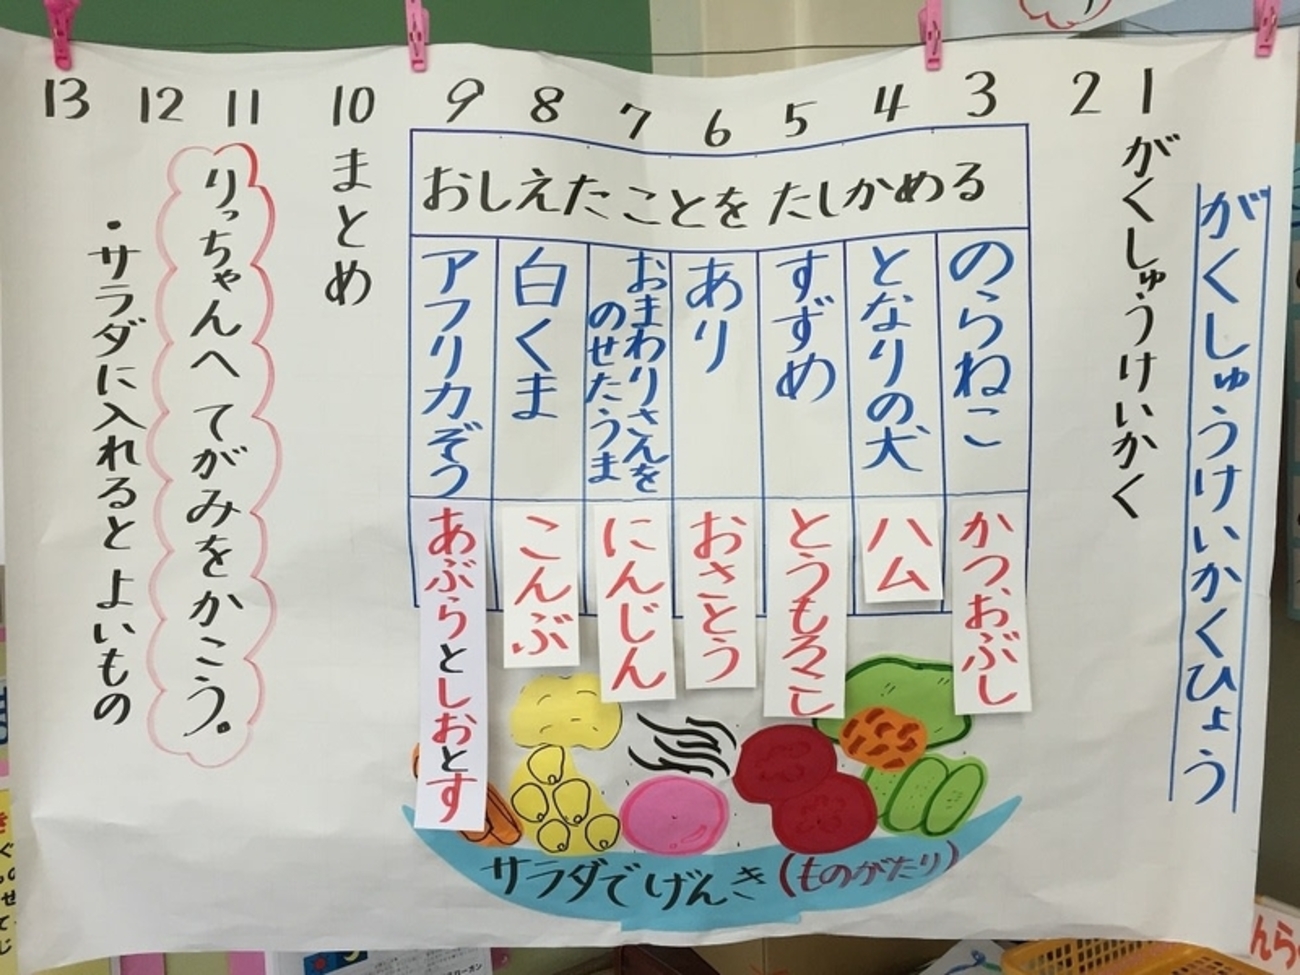 がくしゅうけいかくひょう
1
がくしゅうけいかく
2
3
4
5
6
7
8
9
おしえたことを たしかめる
のらねこ
かつおぶし
となりの犬
ハム
すずめ
とうもろこし
あり
おさとう
おまわりさんを
のせたうま
にんじん
白くま
こんぶ
アフリカぞう
あぶらとしおとす
サラダでげんき(ものがたり)
10
まとめ
11
りっちゃんへ てがみをかこう。
12
・サラダに入れると よいもの
13